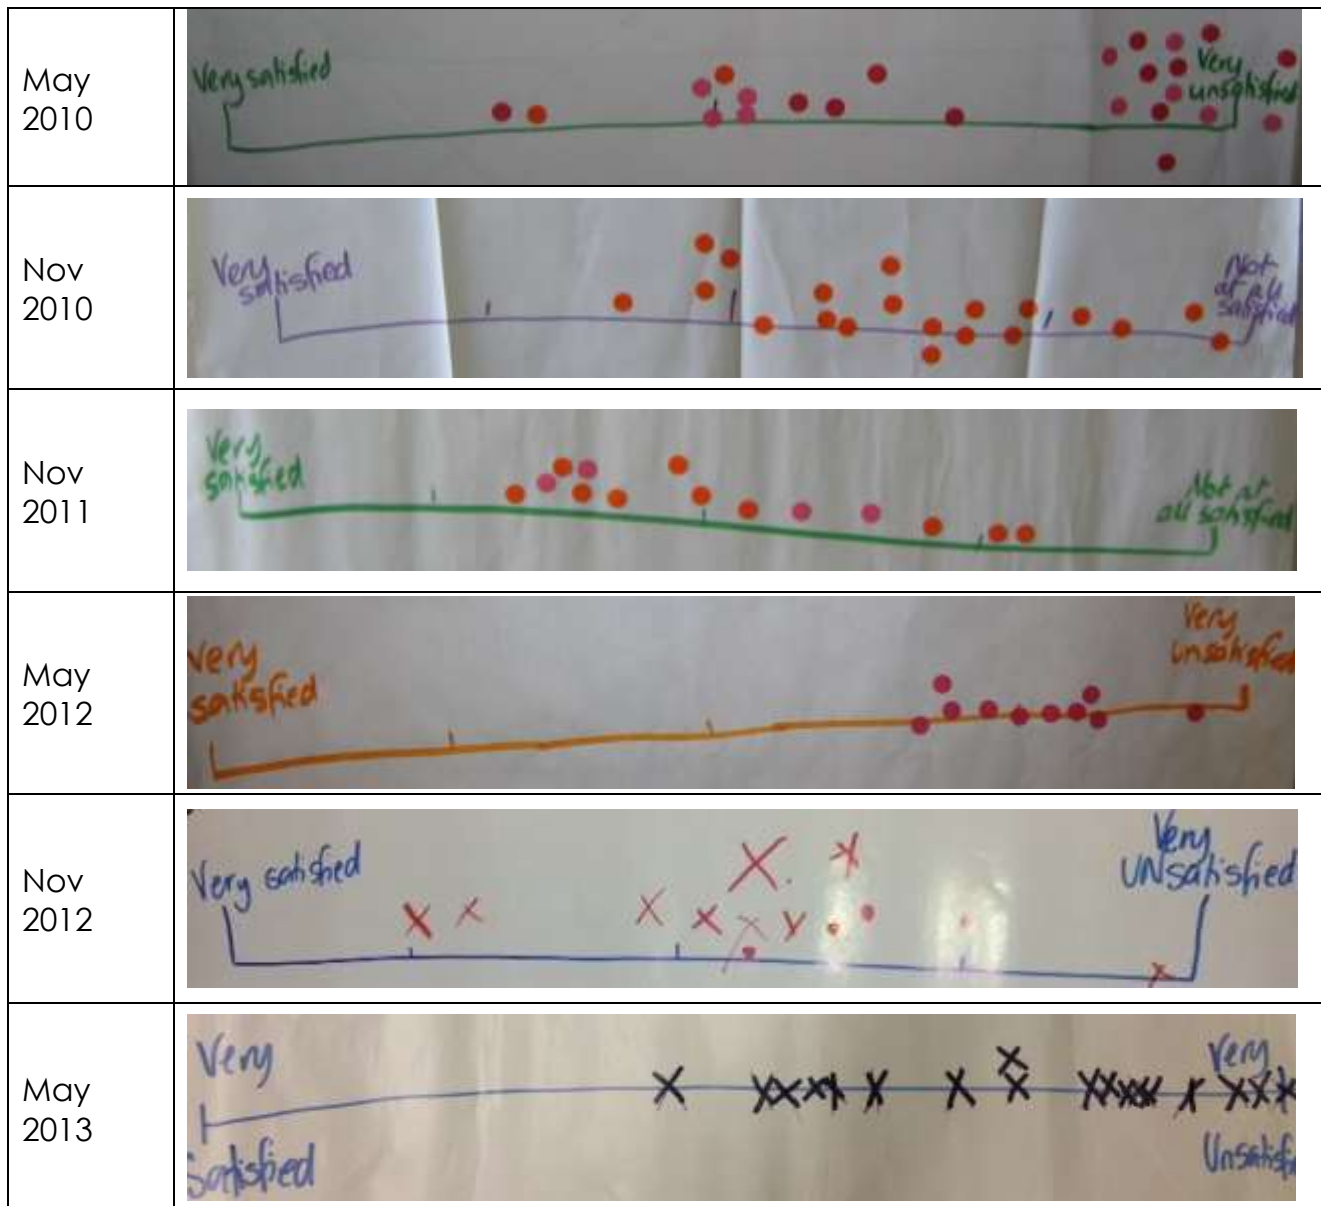 May
2010
Very satisfied
Very
unsatisfied
Nov
2010
Very
satisfied
Not
at all
satisfied
Nov
2011
Very
satisfied
Not at
all satisfied
May
2012
Very
satisfied
Very
unsatisfied
Nov
2012
Very satisfied
Very
UNsatisfied
May
2013
Very
Satisfied
Very
Unsatisfi